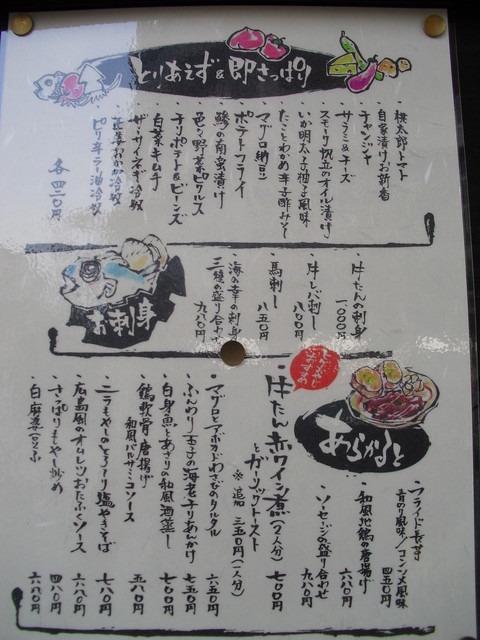 とりあえず&即さっぱり
桃太郎トマト
自家漬けお新香
チャンジャ
サラミ&チーズ
スモーク帆立のオイル漬け
いか明太子柚子風味
たことわかめ辛子酢みそ
マグロ納豆
ポテトフライ
鯵の南蛮漬け
色々野菜ピクルス
チリポテト&ビーンズ
白菜キムチ
ザーサイネギ冷奴
おかか冷奴
ピリ辛ラー油冷奴
各四二〇円
お刺身
牛たんの刺身
一、〇〇〇円
牛レバ刺し
八〇〇円
馬刺し
八五〇円
海の幸の刺身
三種の盛り合わせ
九八〇円
あらかると
フライド長芋
青のり風味/コンソメ風味
四五〇円
和風地鶏の唐揚げ
六八〇円
ソーセージの盛り合わせ
九八〇円
牛たん赤ワイン煮(2人分)
とガーリックトースト
七〇〇円
※追加 三五〇円(一人分)
マグロとアボカドわさびのタルタル
六五〇円
ふんわり玉子の海老チリあんかけ
七五〇円
白身魚とあさりの和風酒蒸し
七〇〇円
鶏軟骨唐揚げ
和風バルサミコソース
五八〇円
ニラもやしのとろ〜り塩やきそば
七八〇円
広島風のオムレツおたふくソース
六八〇円
さっぱりもやし炒め
四八〇円
白麻婆豆ふ
六八〇円